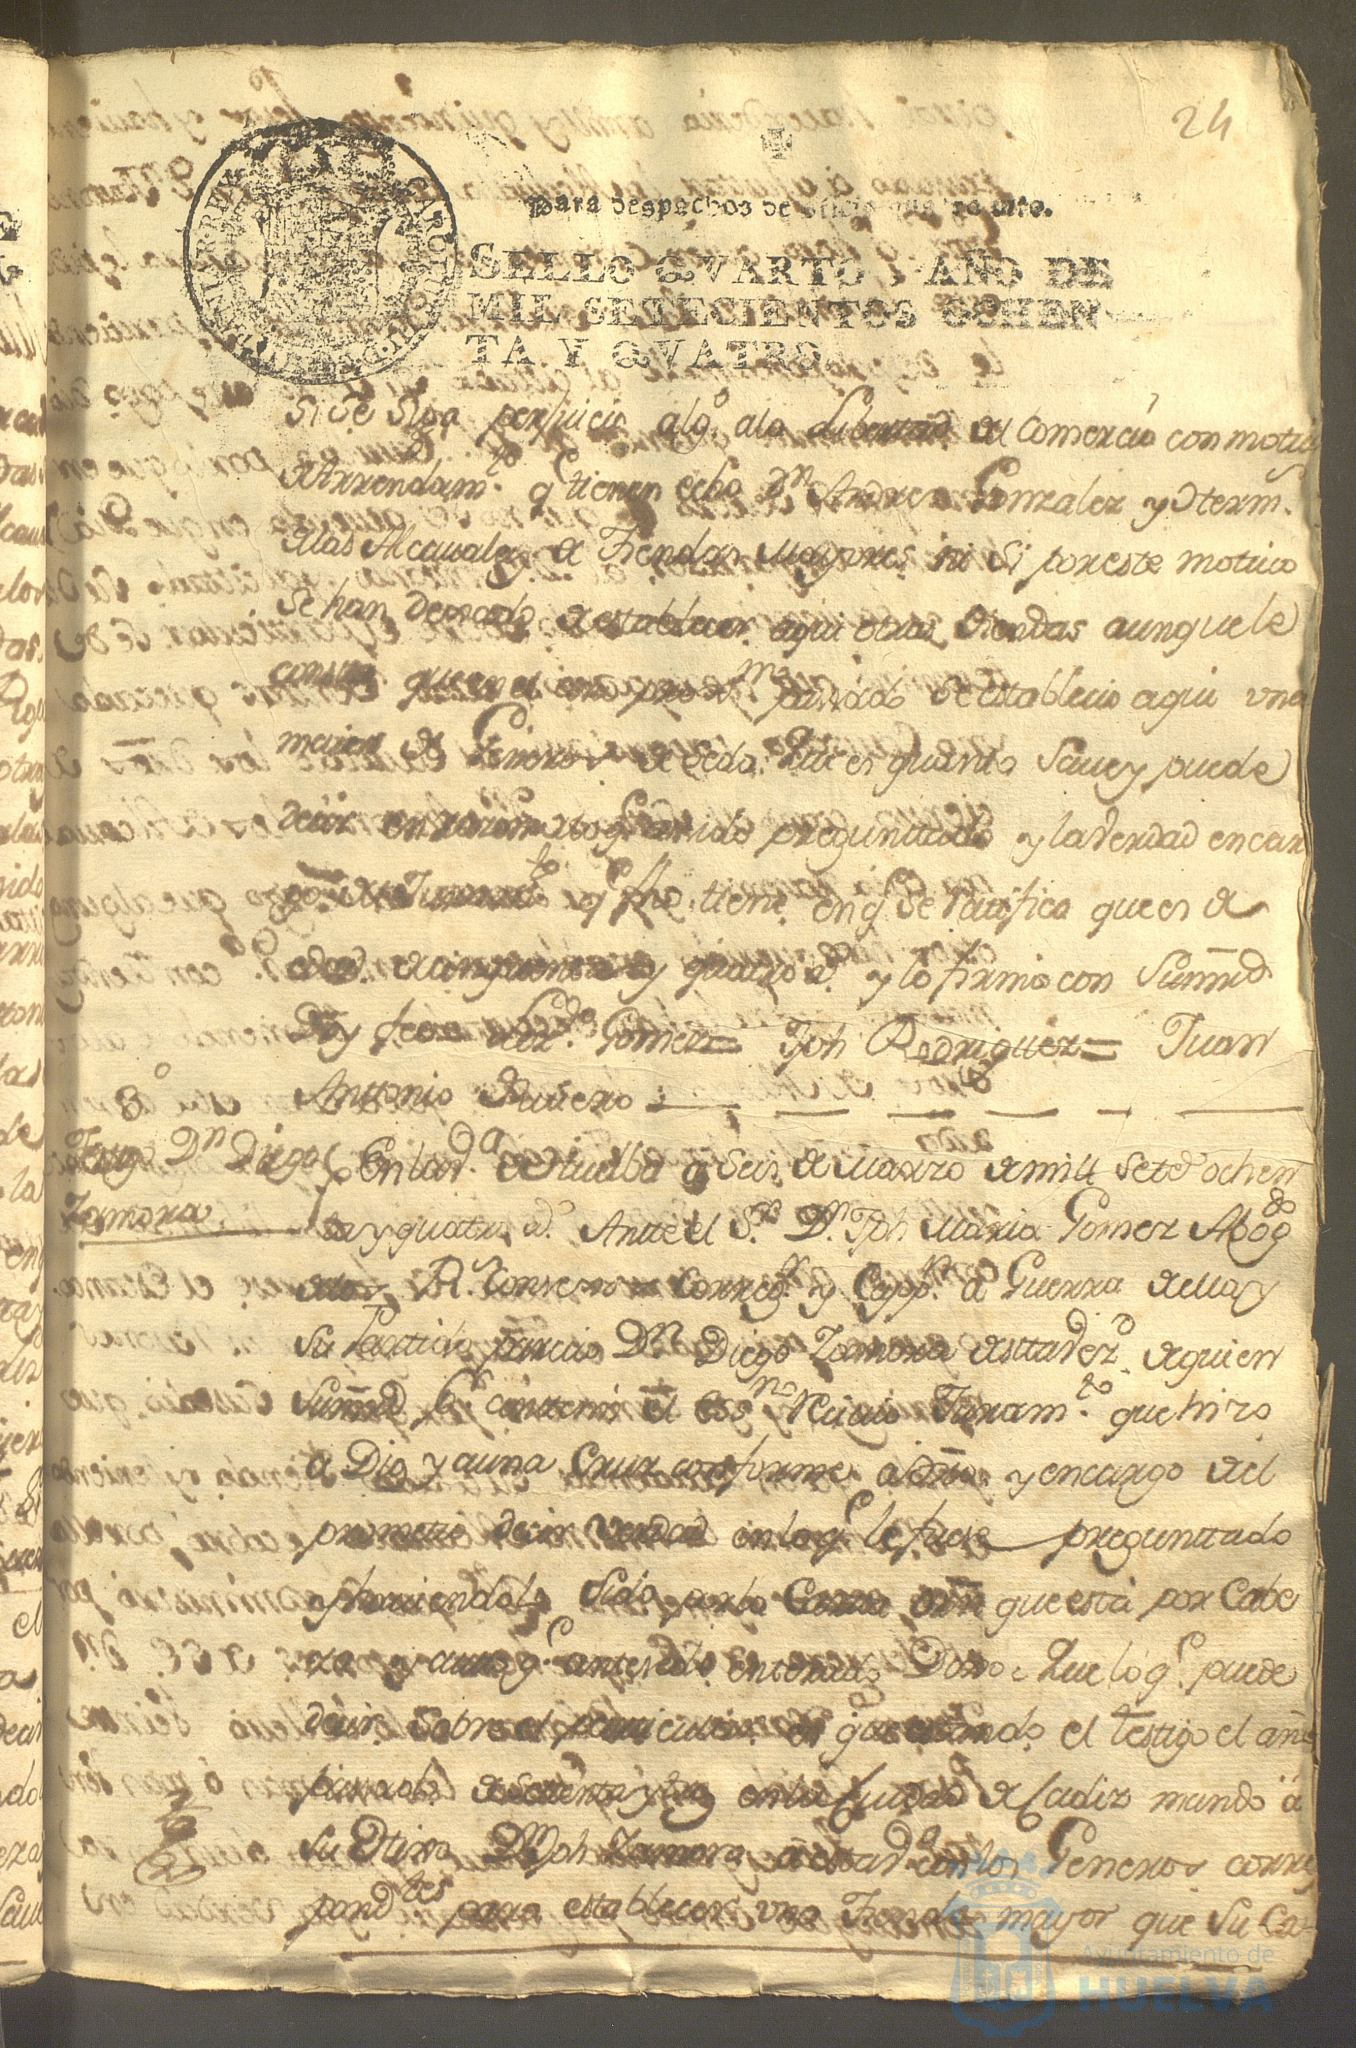 24
Para despachos de oficio quatro mrs.
SELLO QVARTO, AÑO DE
MIL SETECIENTOS OCHEN
TA Y QVATRO.
si se siga perjuicio algo. a la Libertad del Comercio con motivo
del Arrendamto. q tienen echo Dn. Andres Gonzalez y
a las Alcavalas de Tiendas mayores, ni si por este motivo
Se han dexado de establecer aqui otras tiendas aunque le
consta que en el año proxmo. pasado se establecio aqui una
de Generos de Seda. Que es quanto save y puede
decir en razon de lo q. a sido preguntado y la verdad en car
go del Juramto. q fho. tiene en q. Se ratifica que es de
edad de cinquenta y quatro ad. y lo firmo con Sumrd.
Doy fee = Gomez = Jph Rodriguez = Juan
Antonio
8o
Testigo Dn Diego
Zamora
En la Va. de Huelba a Seis de Marzo de mill Setes. ochen
ta y quatro ad. Ante el Sr. Dn. Jph Maria Gomez Abogdo
de los Rs. Consexos Corregr. y Cappn. a Guerra de ella y
su Partido parecio Dn. Diego Zamora de esta Vezd. de quien
Sumrd. por ante mi el Essno. Recivio Juramto. que hizo
a Dios y a una Cruz conforme a dro. y encargo del
prometio decir verdad en lo q. le fuese preguntado
y haviendolo sido por la Carta orn que está por Cabe
za y auto q. antecede enterado Dixo: Que lo q. puede
decir sobre el particular es que estando el testigo el año
pasado de Setenta y tres en la Ciudad de Cadiz mando á
su Dn Jph Zamora a esta Va. con los Generos corres
pondtes para establecer una Tienda mayor que su Ca-
Ayuntamiento de
HUELVA